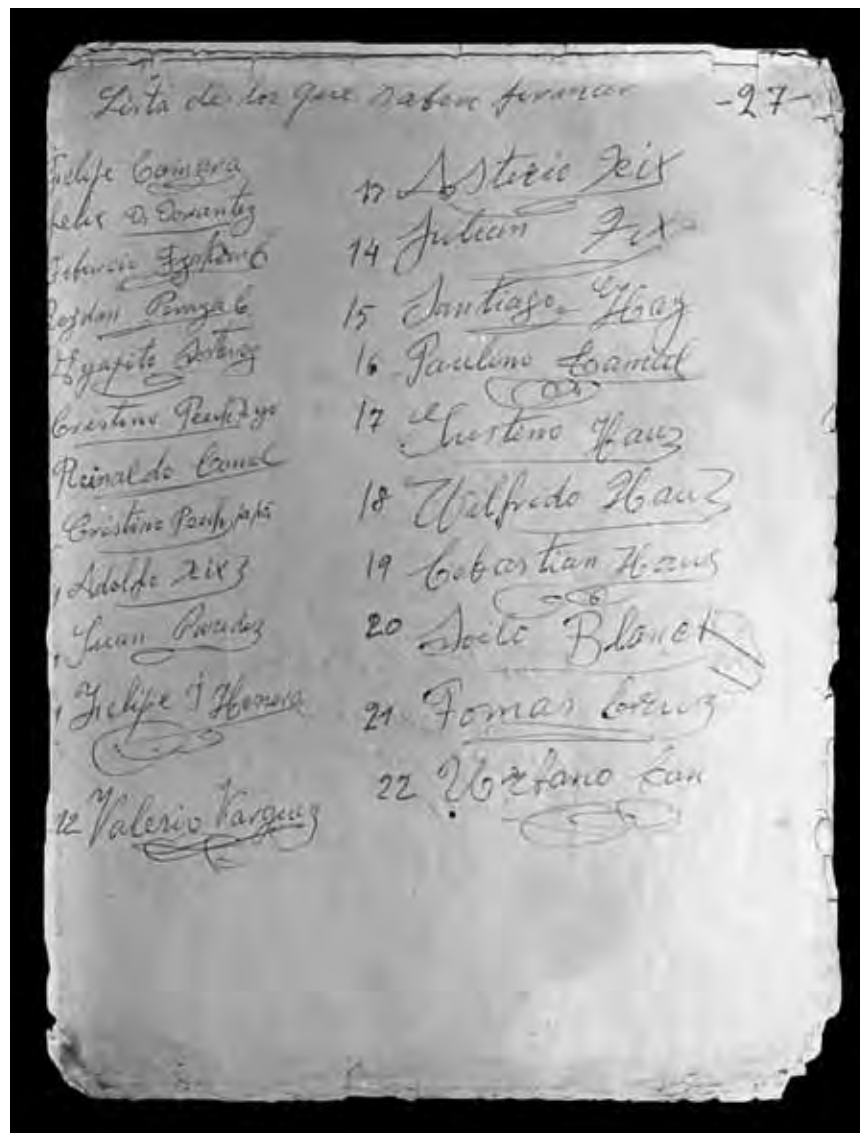 Lista de los que saben firmar -27-
Felipe Camara
Felix D. Dorantez
Tiburcio
Pomgab
Agapito
Cristino Pech hijo
Reinaldo Canul
Cristino Pech papá
Adolfo Xix
Juan Paredez
Felipe J Herrera
12 Valerio Varguez
13 Asterio Xix
14 Julian Xix
15 Santiago Hau
16 Paulino Camul
17 Justino Hauz
18 Wilfredo Hauz
19 Cebastian Hauz
20 Soilo Blanco
21 Tomas Cruz
22 Urbano Can